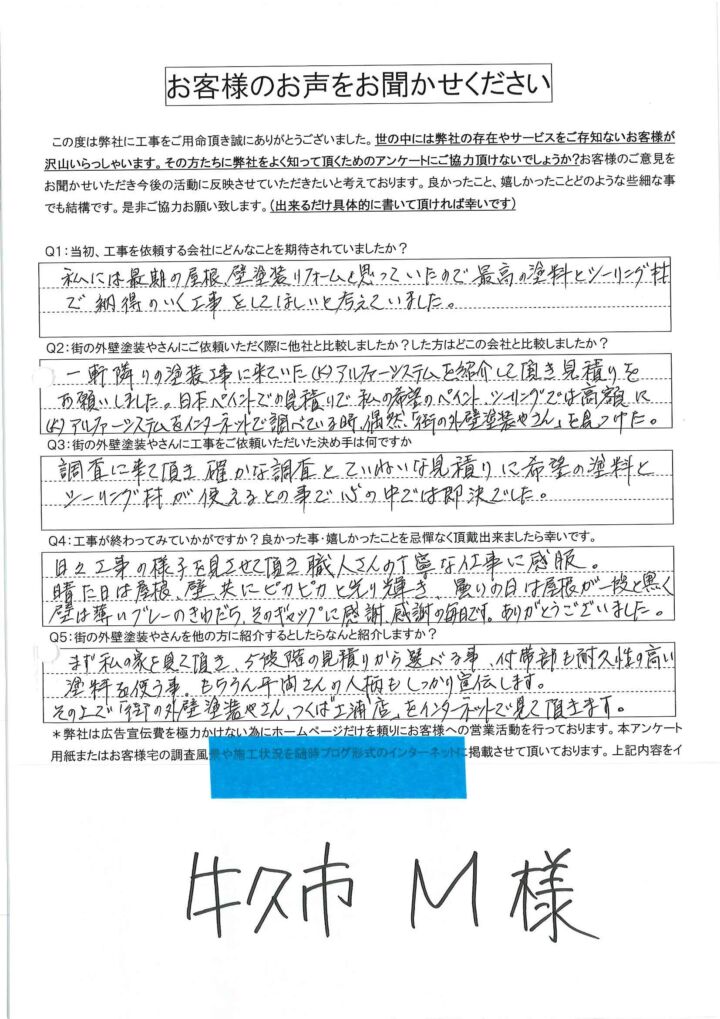 お客様のお声をお聞かせください
この度は弊社に工事をご用命頂き誠にありがとうございました。世の中には弊社の存在やサービスをご存知ないお客様が
沢山いらっしゃいます。その方たちに弊社をよく知って頂くためのアンケートにご協力頂けないでしょうか?お客様のご意見を
お聞かせいただき今後の活動に反映させていただきたいと考えております。良かったこと、嬉しかったことどのような些細な事
でも結構です。是非ご協力お願い致します。(出来るだけ具体的に書いて頂ければ幸いです)
Q1:当初、工事を依頼する会社にどんなことを期待されていましたか?
私には最期の屋根、壁塗装リフォームと思っていたので最高の塗料とシーリング材
で納得のいく工事をしてほしいと考えていました。
Q2:街の外壁塗装やさんにご依頼いただく際に他社と比較しましたか?した方はどこの会社と比較しましたか?
一軒隣りの塗装工事に来ていた(株)アルファーシステムを紹介して頂き見積りを
お願いしました。日本ペイントでの見積りで私の希望のペイント、シーリングでは高額に
(株)アルファーシステムをインターネットで調べている時、偶然、「街の外壁塗装やさん」を見つけた。
Q3:街の外壁塗装やさんに工事をご依頼いただいた決め手は何ですか
調査に来て頂き確かな調査とていねいな見積りに希望の塗料と
シーリング材が使えるとの事で心の中では即決でした。
Q4:工事が終わってみていかがですか?良かった事・嬉しかったことを忌憚なく頂戴出来ましたら幸いです。
日々工事の様子を見させて頂き職人さんの丁寧な仕事に感服。
晴た日は屋根、壁共にピカピカと光り輝き、曇りの日は屋根が一段と黒く
壁は薄いブレーのきわだち、そのギャップに感謝、感謝の毎日です。ありがとうございました。
Q5:街の外壁塗装やさんを他の方に紹介するとしたらなんと紹介しますか?
まず私の家を見て頂き、5段階の見積りから選べる事、付帯部も耐久性の高い
塗料を使う事。もちろん平岡さんの人柄もしっかり宣伝します。
その上で「街の外壁塗装やさん、つくば土浦店」をインターネットで見て頂きます。
*弊社は広告宣伝費を極力かけない為にホームページだけを頼りにお客様への営業活動を行っております。本アンケート
用紙またはお客様宅の調査風景や施工状況を随時ブログ形式のインターネットに掲載させて頂いております。上記内容をイ
牛久市 M様